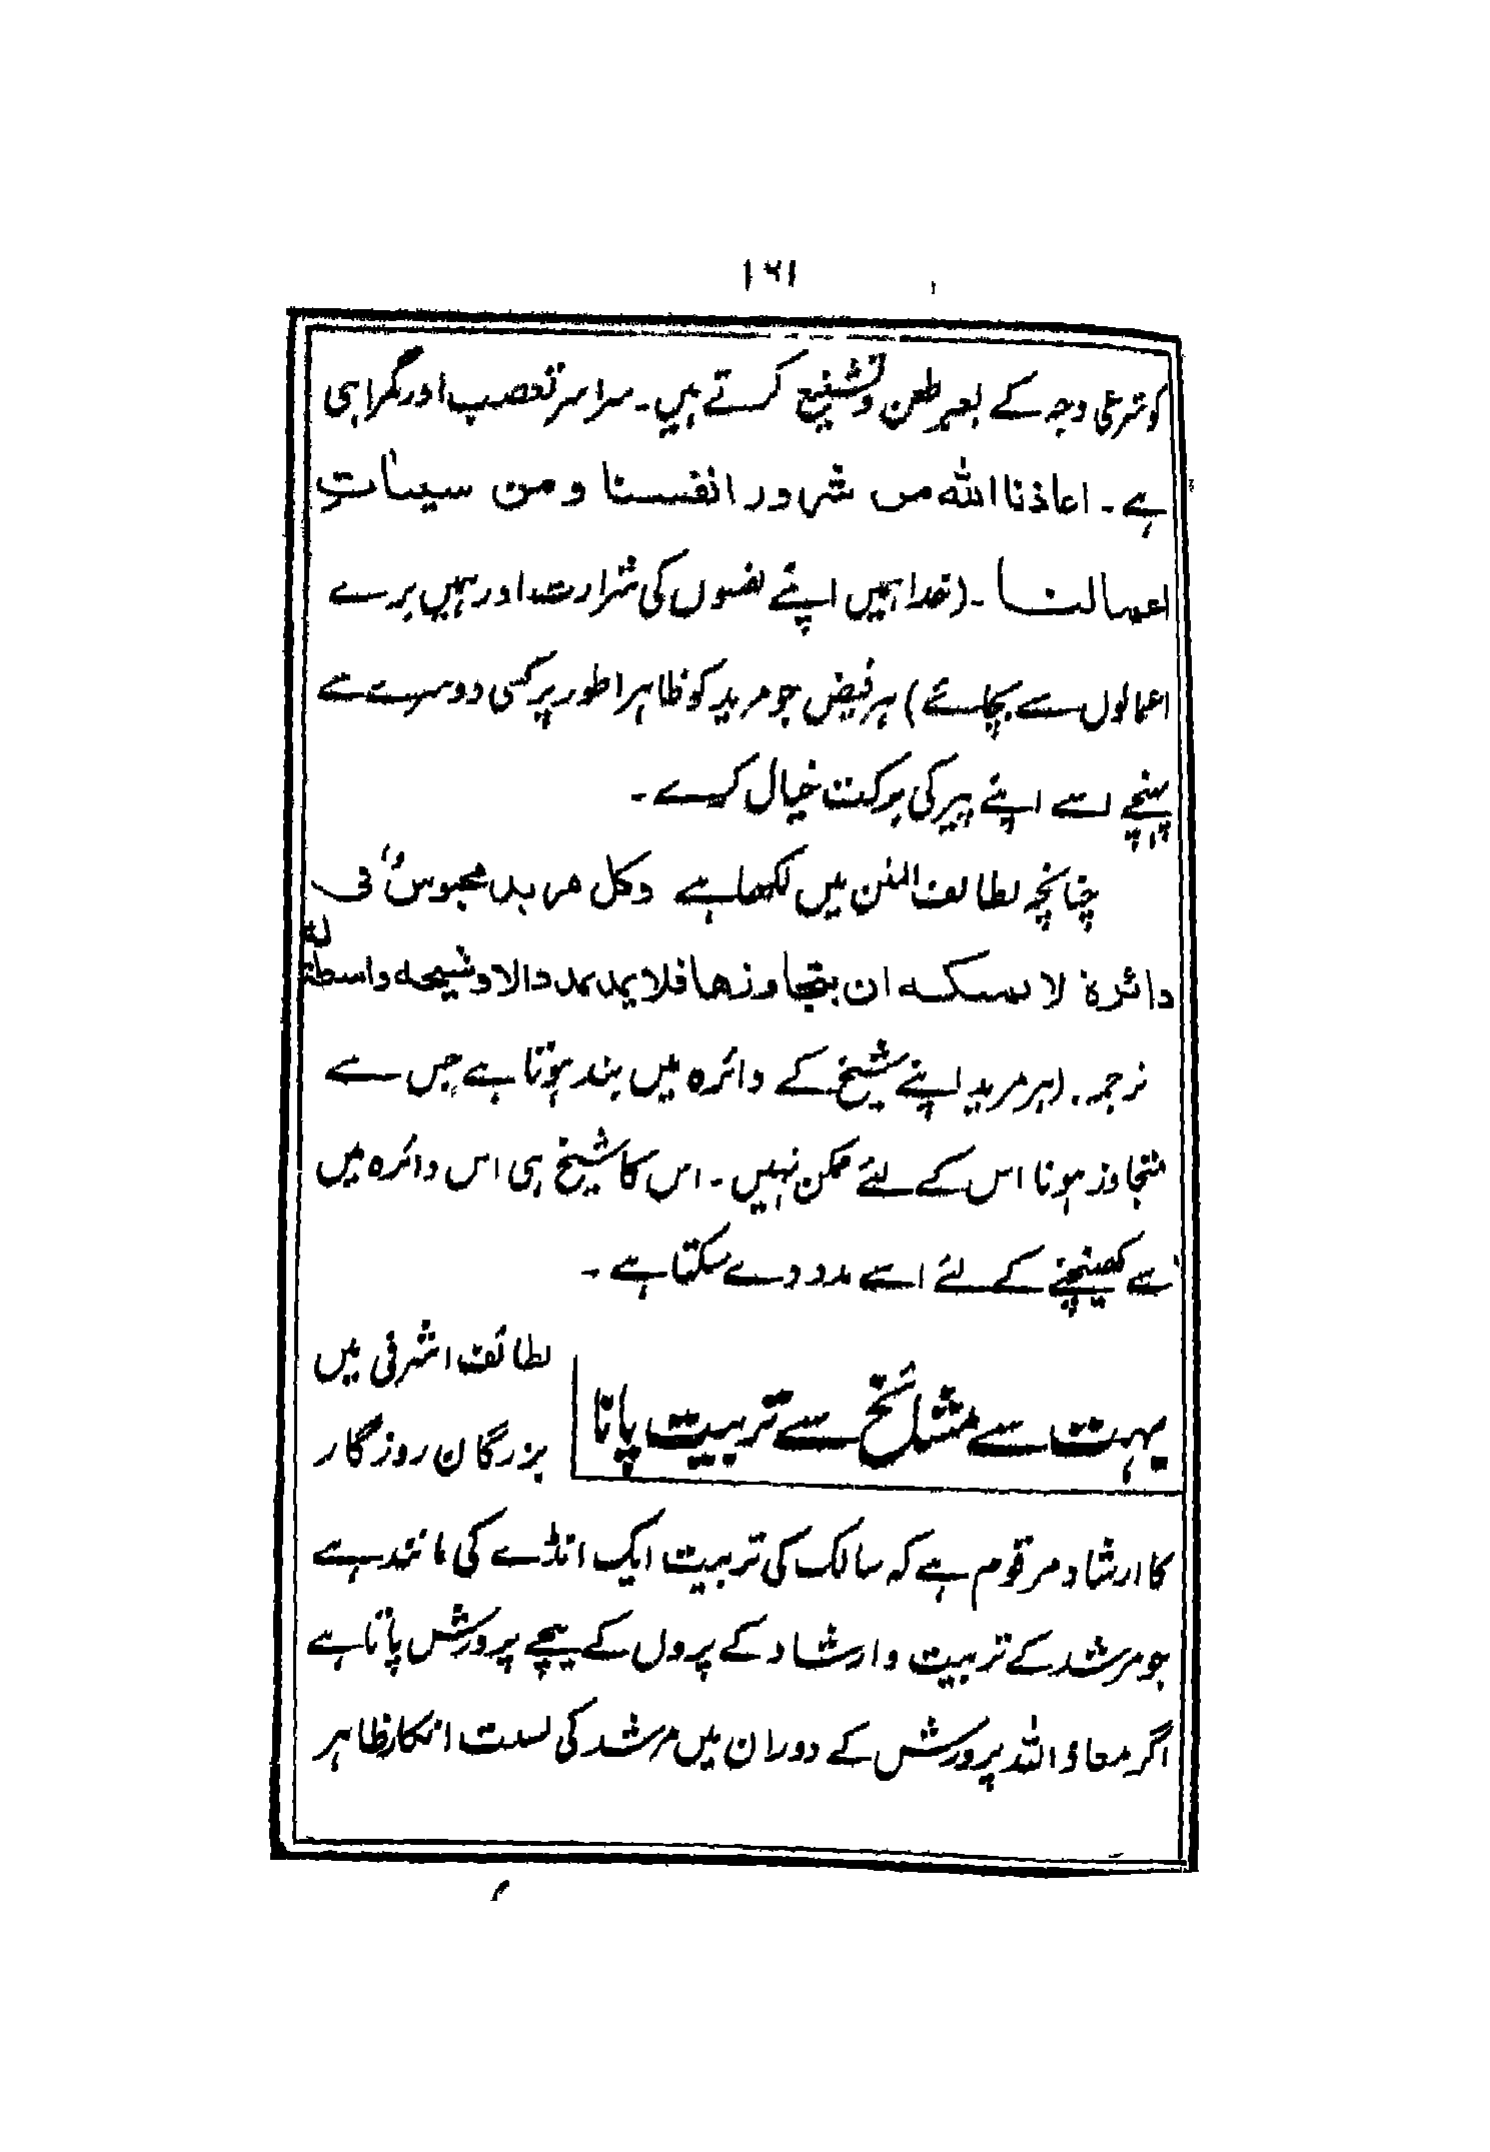 ۱۶۱
کو شرعی وجہ کے بغیر طعن و تشنیع کرتے ہیں۔ سراسر تعصب اور گمراہی
ہے۔ اعاذنا اللہ من شرور انفسنا و من سیئات
اعمالنا۔ (خدا ہمیں اپنے نفسوں کی شرارت اور ہمیں برے
اعمالوں سے بچائے) ہر فیض جو مرید کو ظاہرا طور پر کسی دوسرے سے
پہنچے اسے اپنے پیر کی برکت خیال کرے۔
چنانچہ لطائف المنن میں لکھا ہے وکل مرید محبوس فی
دائرۃ لا یمکنہ ان یتجاوزھا فلا یمد مددا الا و شیخہ واسطۃ لہ
ترجمہ۔ (ہر مرید اپنے شیخ کے دائرہ میں بند ہوتا ہے جس سے
متجاوز ہونا اس کے لئے ممکن نہیں۔ اس کا شیخ ہی اس دائرہ میں
سے کھینچنے کے لئے اسے مدد دے سکتا ہے۔
بہت سے مشائخ سے تربیت پانا
لطائف اشرفی میں
بزرگان روزگار
کا ارشاد مرقوم ہے کہ سالک کی تربیت ایک انڈے کی مانند ہے
جو مرشد کے تربیت و ارشاد کے پروں کے نیچے پرورش پاتا ہے
اگر معاذ اللہ پرورش کے دوران میں مرشد کی نسبت انکار ظاہر